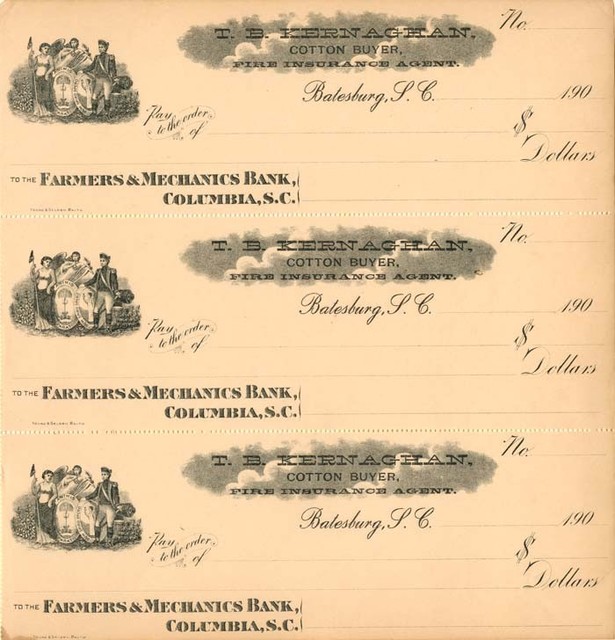 No.
T. B. KERNAGHAN,
COTTON BUYER,
FIRE INSURANCE AGENT.
Batesburg, S. C. 190
Pay to the order of $
Dollars
TO THE FARMERS & MECHANICS BANK,
COLUMBIA, S.C.
No.
T. B. KERNAGHAN,
COTTON BUYER,
FIRE INSURANCE AGENT.
Batesburg, S. C. 190
Pay to the order of $
Dollars
TO THE FARMERS & MECHANICS BANK,
COLUMBIA, S.C.
No.
T. B. KERNAGHAN,
COTTON BUYER,
FIRE INSURANCE AGENT.
Batesburg, S. C. 190
Pay to the order of $
Dollars
TO THE FARMERS & MECHANICS BANK,
COLUMBIA, S.C.